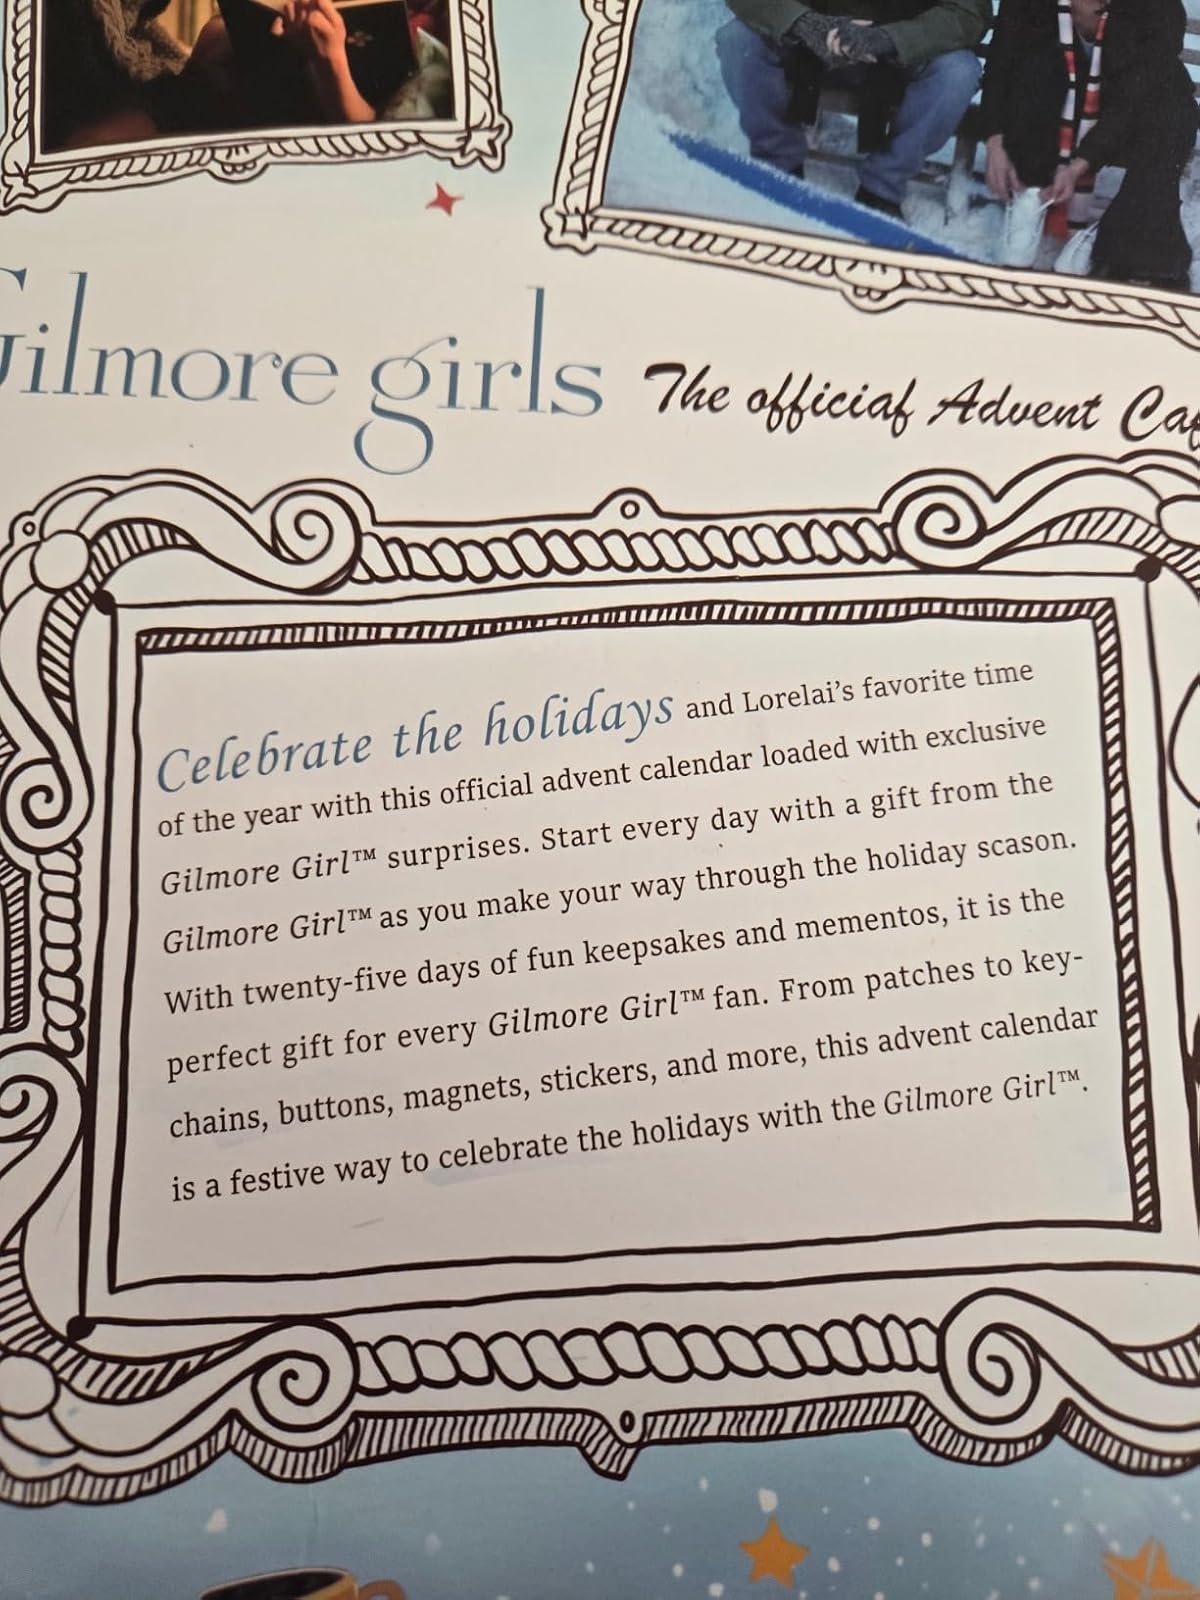 Gilmore girls The official Advent Ca
Celebrate the holidays and Lorelai's favorite time
of the year with this official advent calendar loaded with exclusive
Gilmore Girl™ surprises. Start every day with a gift from the
Gilmore Girl™ as you make your way through the holiday scason.
With twenty-five days of fun keepsakes and mementos, it is the
perfect gift for every Gilmore Girl™ fan. From patches to key-
chains, buttons, magnets, stickers, and more, this advent calendar
is a festive way to celebrate the holidays with the Gilmore Girl™.